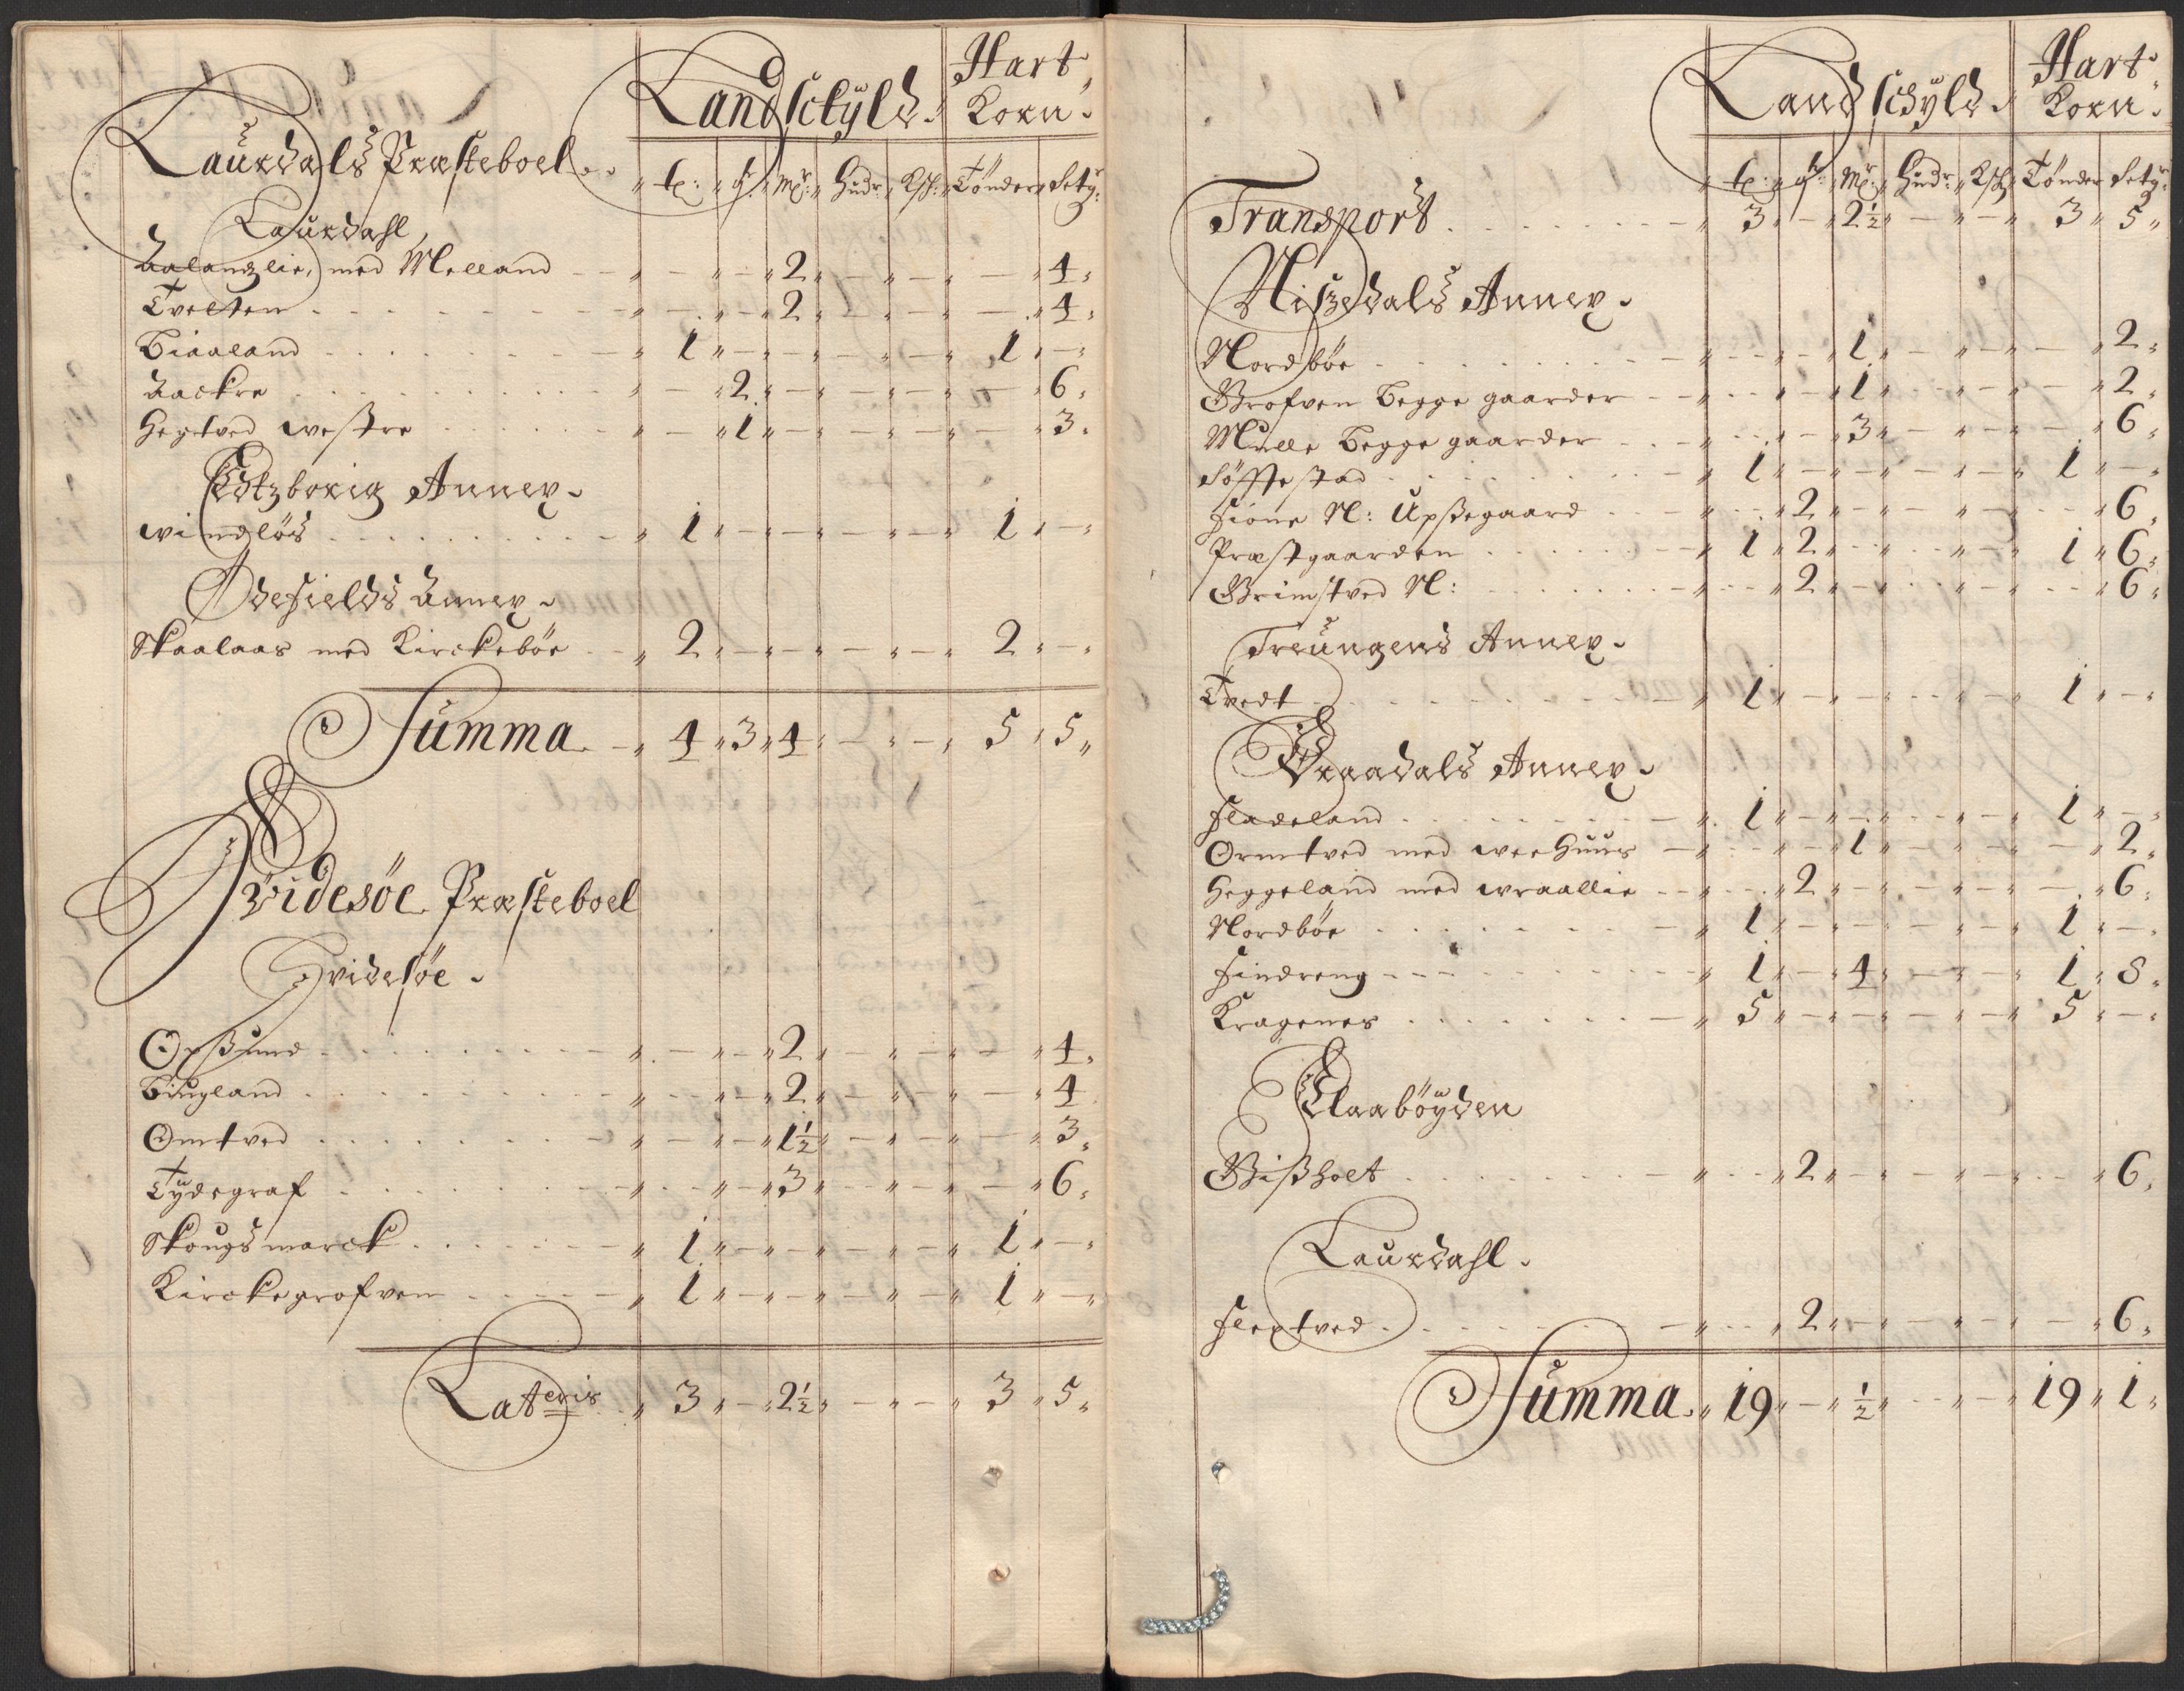 Landschyld. Hart Korn.
Laurdals Præsteboel
t: g: mr: Hudr: Ksk: Tønder Setg:
Laurdahl
Aalandzlie, med Mælland - - 2 - - - 4
Tveiten - - 2 - - - 4
Biaaland 1 - - - - 1 -
Aackre - 2 - - - - 6
Hegtved westre - 1 - - - - 3
Annex
windløs 1 - - - - 1 -
Ødefields Annex
Skaalaas med Kirckebøe 2 - - - - 2 -
Summa 4 3 4 - - 5 5
Hvidesøe Præsteboel
Hvidesøe
Opsund - - 2 - - - 4
Bingland - - 2 - - - 4
Omtved - - 1½ - - - 3
Tydegraf - - 3 - - - 6
Skougsmarck 1 - - - - 1 -
Kirckegrofven 1 - - - - 1 -
Lateris 3 - 2½ - - 3 5
Landschyld. Hart Korn.
t: g: mr: Hudr: Ksk: Tønder Setg:
Transport 3 - 2½ - - 3 5
Nissedals Annex
Nordbøe - - 1 - - - 2
Grofven Begge gaarder - - 1 - - - 2
Mulle Begge gaarder - - 3 - - - 6
Søfftestad 1 - - - - 1 -
Fione N: Upsegaard - 2 - - - - 6
Præstgaarden 1 2 - - - 1 6
Grimstved N: - 2 - - - - 6
Treungens Annex
Tvedt 1 - - - - 1 -
Vraadals Annex
Fladeland 1 - - - - 1 -
Ormtved med weehuus - - 1 - - - 2
Heggeland med wraallie - 2 - - - - 6
Nordbøe 1 - - - - 1 -
Findreng 1 - 4 - - 1 8
Kragenes 5 - - - - 5 -
Claabøyden
Bisholt - 2 - - - - 6
Laurdahl
Flegtved - 2 - - - - 6
Summa 19 - ½ - - 19 1